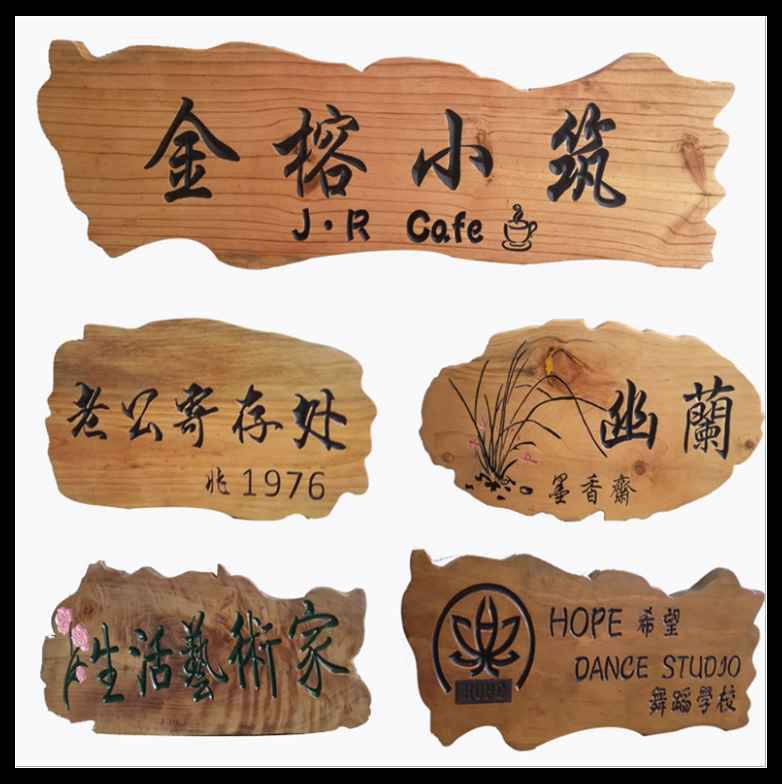 金榕小筑
J·R Cafe
老公寄存处
兆1976
幽蘭
墨香齋
生活藝術家
HOPE 希望
DANCE STUDIO
舞蹈學校